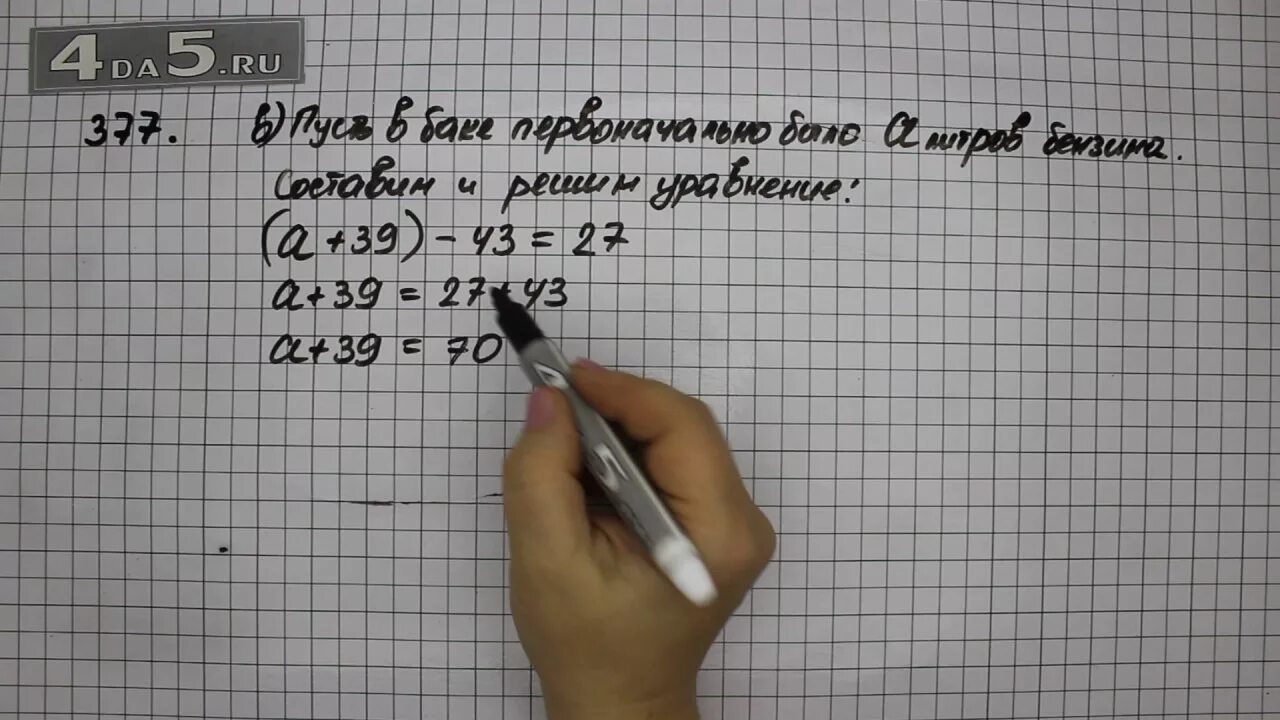 4DA5.RU
377. в) Пусть в баке первоначально было а литров бензина.
Составим и решим уравнение:
(а + 39) - 43 = 27
а + 39 = 27 + 43
а + 39 = 70